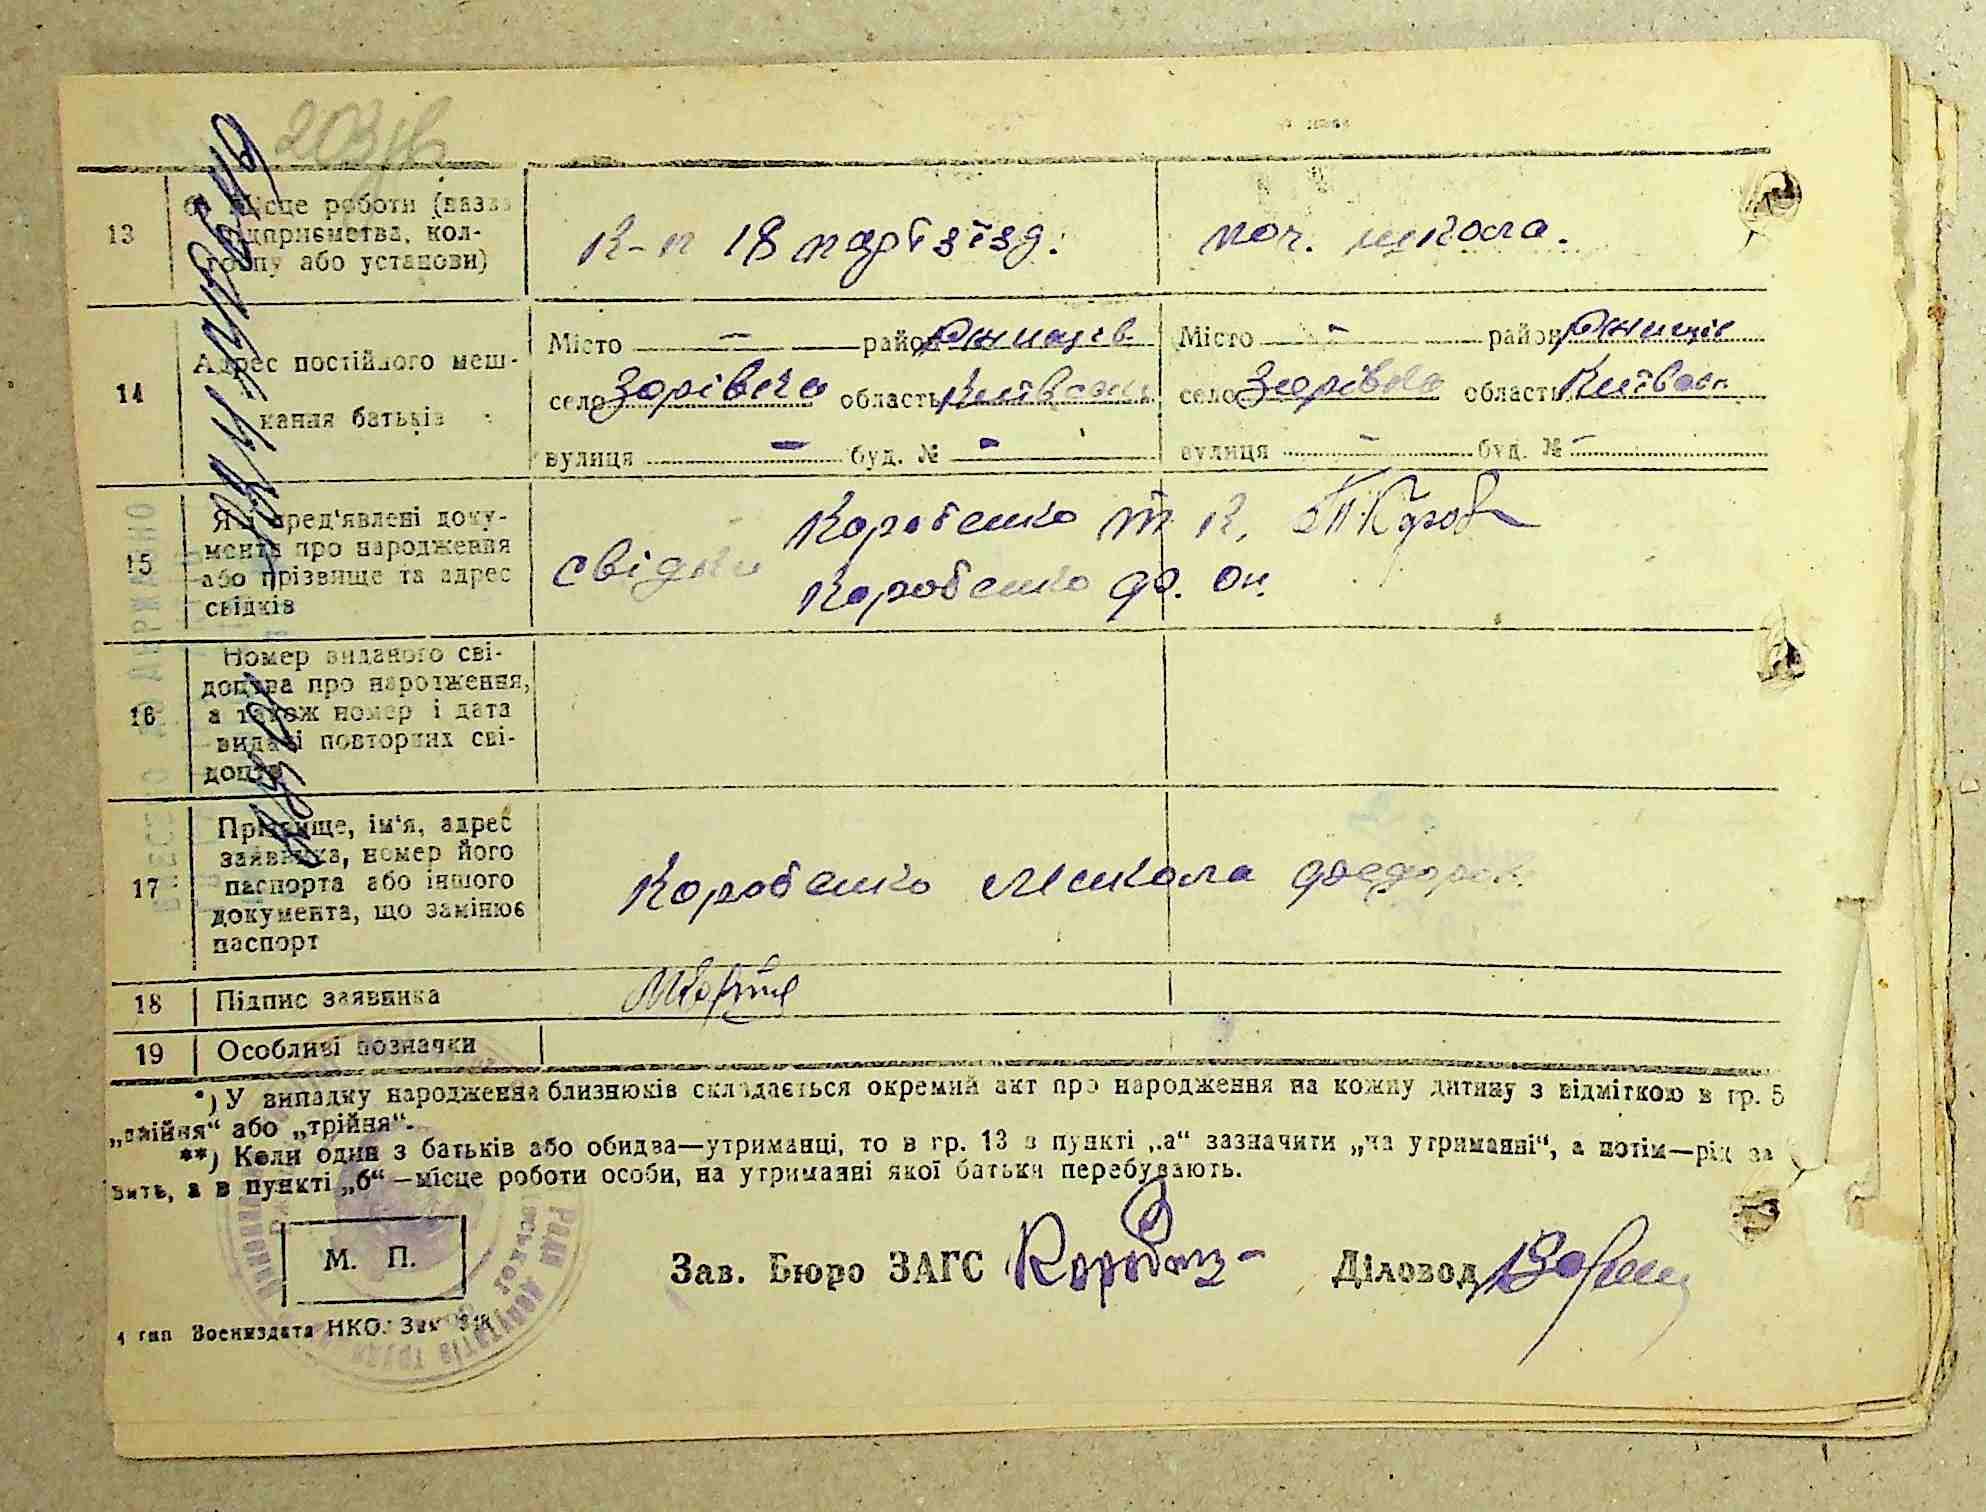 13 б) місце роботи (назва
підприємства, кол-
госпу або установи)
К-п 18 партз'їзд.
поч. школа.
14 Адрес постійного меш-
кання батьків
Місто — район Ржищів.
село Зорівка область Київська
вулиця — буд. № —
Місто — район Ржищів
село Зорівка область Київськ
вулиця — буд. № —
15 Які пред'явлені доку-
менти про народження
або прізвище та адрес
свідків
свідки
Коробенко Т К,
Коробенко Ф. Он.
16 Номер виданого сві-
доцтва про народження,
а також номер і дата
видачі повторних сві-
доцтв
17 Прізвище, ім'я, адрес
заявника, номер його
паспорта або іншого
документа, що замінює
паспорт
Коробенко Микола Федоров.
18 Підпис заявника
19 Особливі позначки
*) У випадку народження близнюків складається окремий акт про народження на кожну дитину з відміткою в гр. 5
„двійня“ або „трійня“.
**) Коли один з батьків або обидва—утриманці, то в гр. 13 в пункті „а“ зазначити „на утриманні“, а потім—рід за
нять, а в пункті „б“—місце роботи особи, на утриманні якої батьки перебувають.
М. П.
Зав. Бюро ЗАГС
Діловод
4 тип Воениздата НКО. Зак